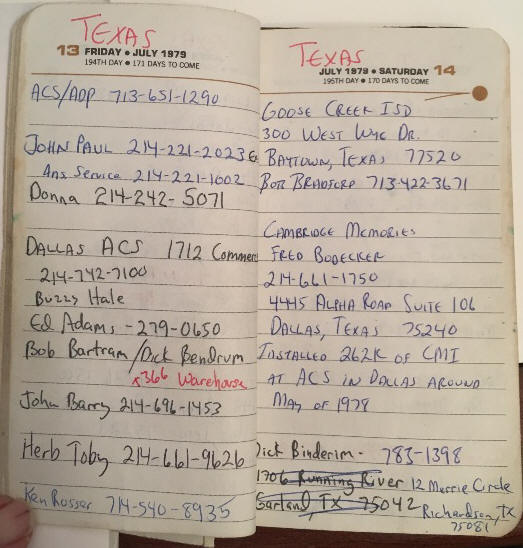 TEXAS
13 FRIDAY • JULY 1979
194TH DAY • 171 DAYS TO COME
ACS/ADP 713-651-1290
JOHN PAUL 214-221-2023
Ans Service 214-221-1002
Donna 214-242-5071
DALLAS ACS 1712 Commerc
214-742-7100
Buzzy Hale
Ed Adams - 279-0650
Bob Bartram/Dick Bendrum
x366 Warehouse
John Barry 214-696-1453
Herb Toby 214-661-9626
Ken Rosser 714-540-8935
TEXAS
JULY 1979 • SATURDAY 14
195TH DAY • 170 DAYS TO COME
GOOSE CREEK ISD
300 WEST WYE DR.
BAYTOWN, TEXAS 77520
BOB BRADFORD 713-422-3671
CAMBRIDGE MEMORIES
FRED BODECKER
214-661-1750
4445 ALPHA ROAD SUITE 106
DALLAS, TEXAS 75240
INSTALLED 262K OF CMI
AT ACS IN DALLAS AROUND
MAY OF 1978
Dick Binderim - 783-1398
1706 Running River 12 Merrie Circle
Garland, TX 75042 Richardson, TX
75081